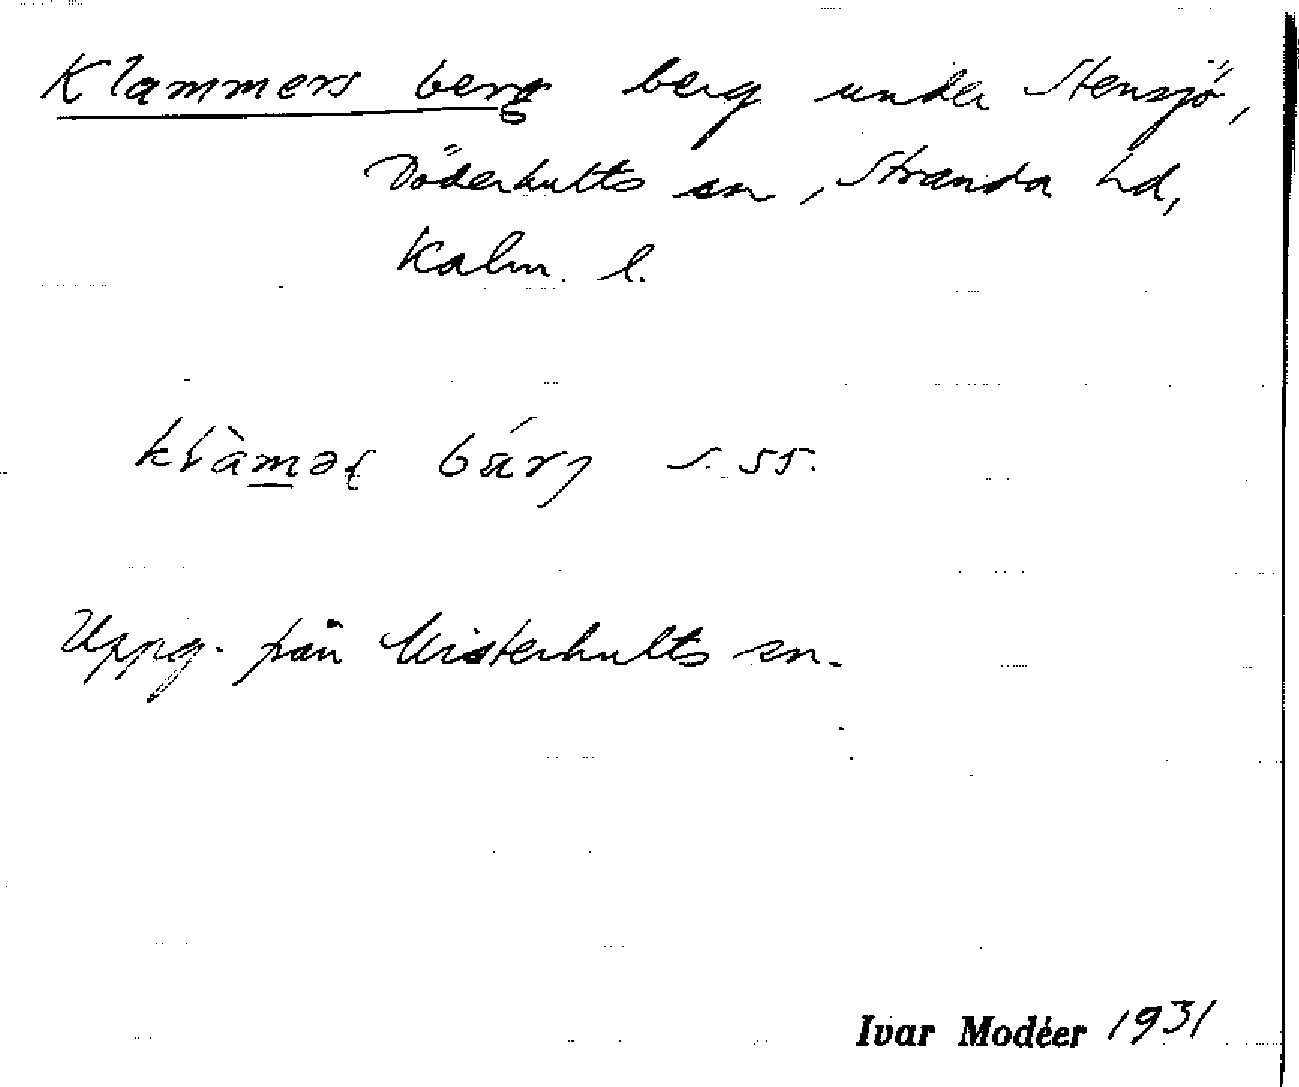 Klammers berg berg under Stensjö,
Döderhults sn, Stranda hd,
Kalm. l.
klàməʂ bárj s. 55.
Uppg. från Misterhults sn.
Ivar Modéer 1931